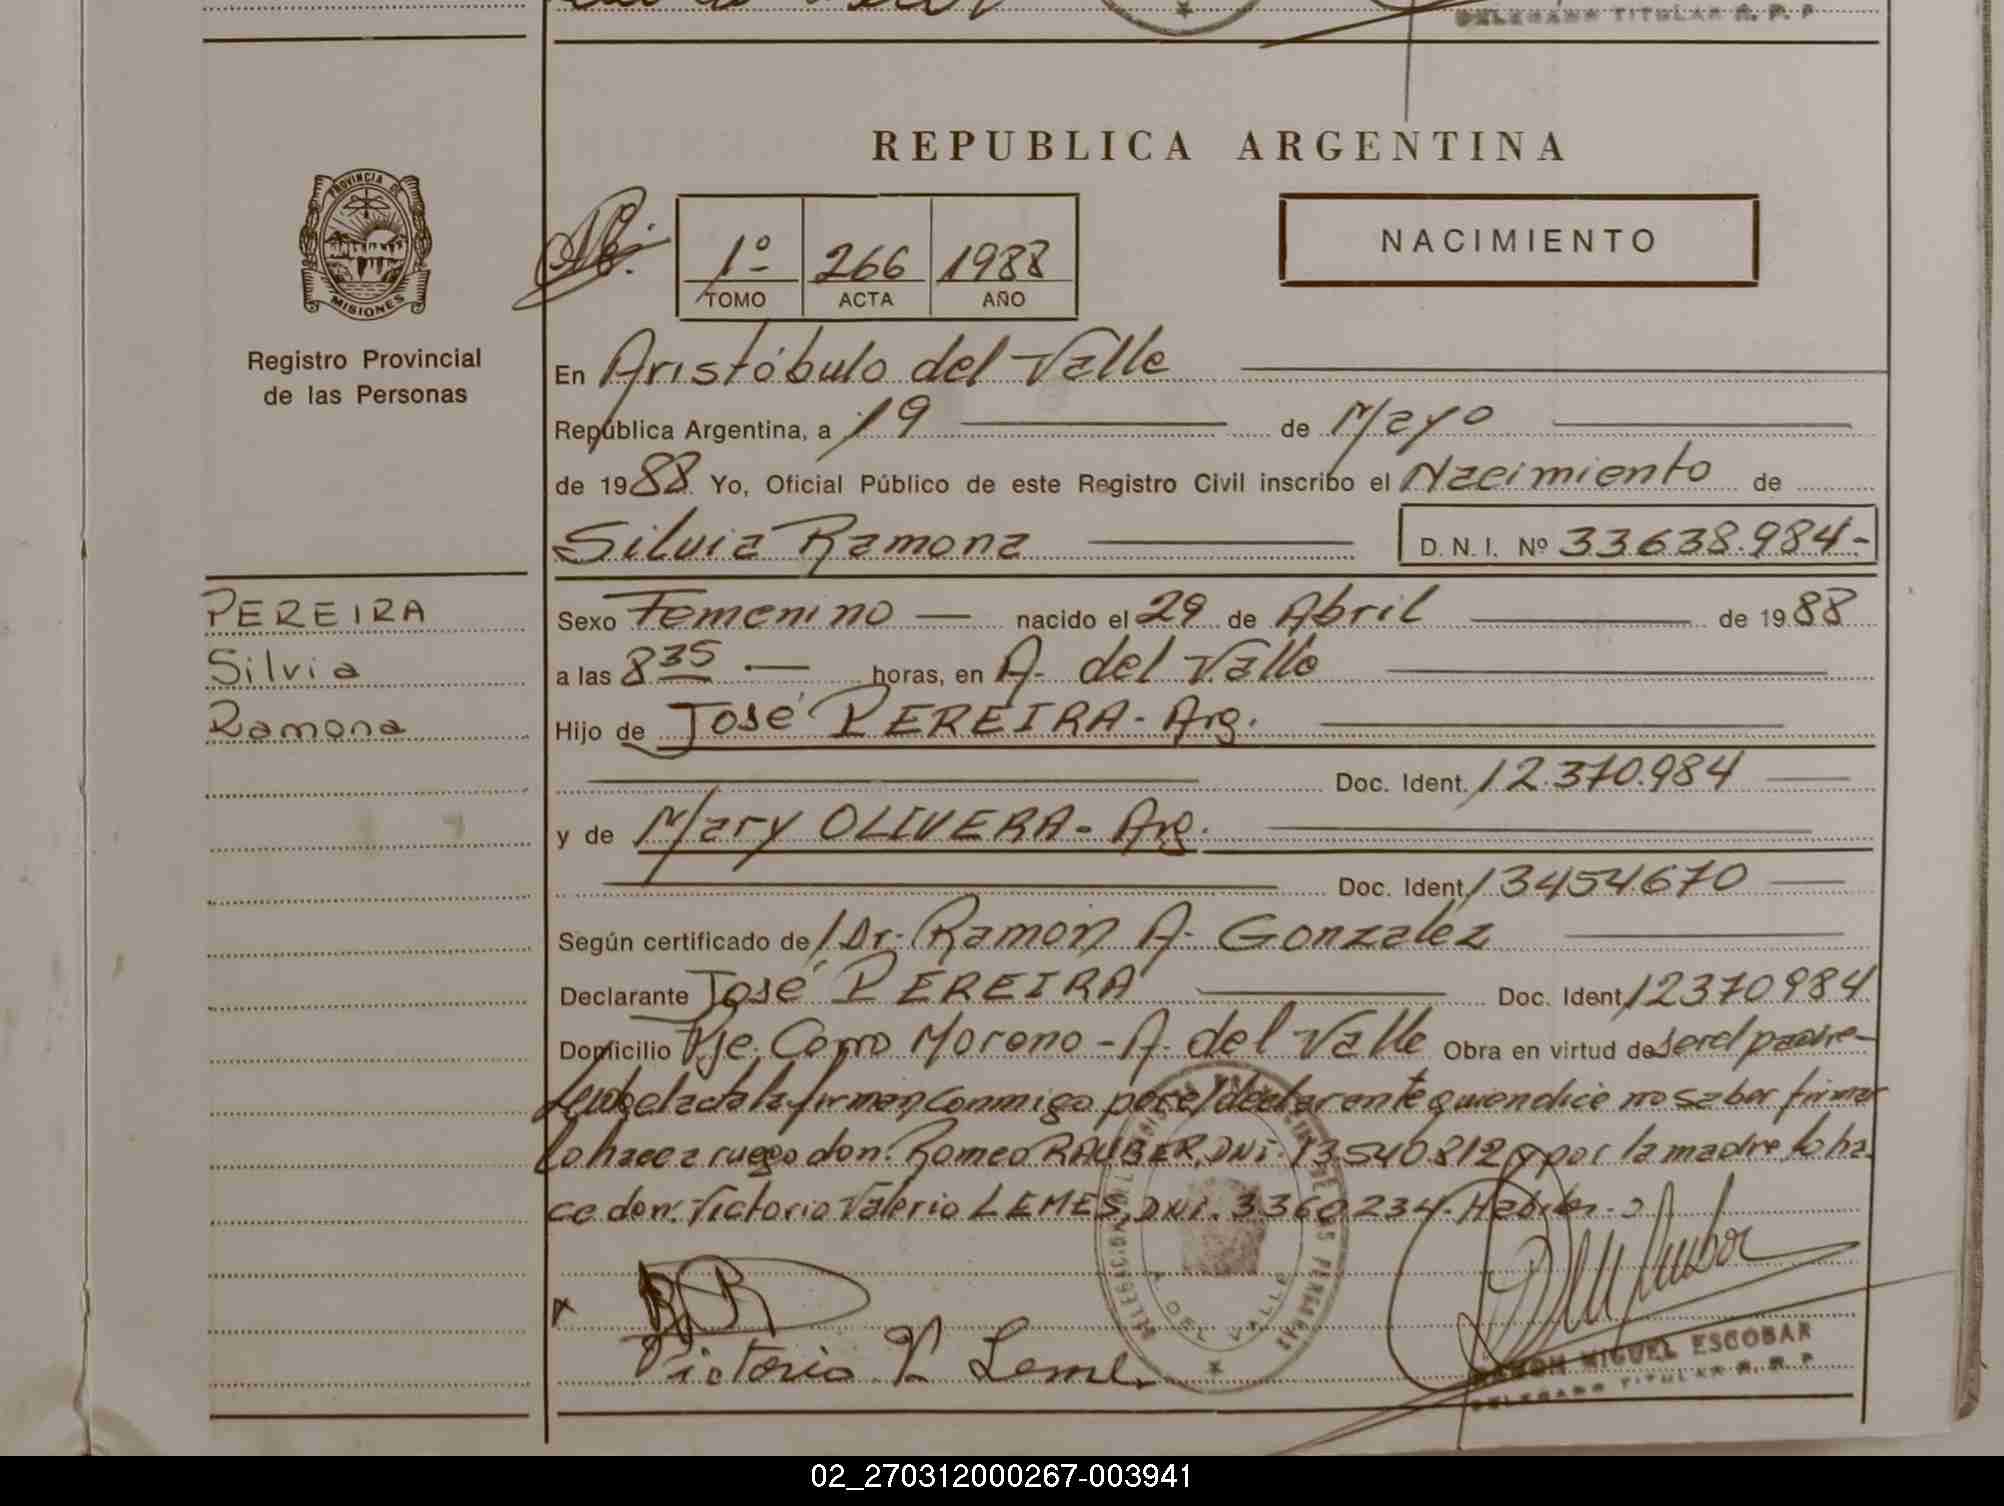 DELEGADO TITULAR R. P. P
REPUBLICA ARGENTINA
PROVINCIA DE
MISIONES
Registro Provincial
de las Personas
1º 266 1988
TOMO ACTA AÑO
NACIMIENTO
En Aristóbulo del Valle
República Argentina, a 19 de Mayo
de 1988 Yo, Oficial Público de este Registro Civil inscribo el Nacimiento de
Silvia Ramona D. N. I. Nº 33638.984-
PEREIRA
Silvia
Ramona
Sexo Femenino nacido el 29 de Abril de 1988
a las 8 35 horas, en A. del Valle
Hijo de José PEREIRA- Arg.
Doc. Ident. 12.370.984
y de Mary OLIVERA- Arg.
Doc. Ident. 13454670
Según certificado de Dr. Ramón A. Gonzalez
Declarante José PEREIRA Doc. Ident. 12370984
Domicilio Pje. Cerro Moreno - A. del Valle Obra en virtud de ser el padre-
Leída el acta la firman conmigo por el declarante quien dice no saber firmar
lo hace a ruego don: Romeo RAUBER, DNi. 13540812 y por la madre lo ha-
ce don: Victorio Valerio LEMES, DNi. 3360234.
DELEGACION DEL REGISTRO PROVINCIAL DE LAS PERSONAS
A. DEL VALLE
Victorio V. Leme
RAMON MIGUEL ESCOBAR
DELEGADO TITULAR R. R. P
02_270312000267-003941